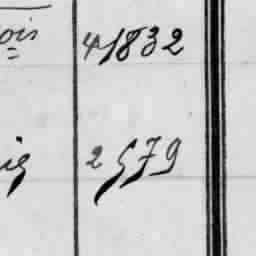 ois 41832
ig 2579